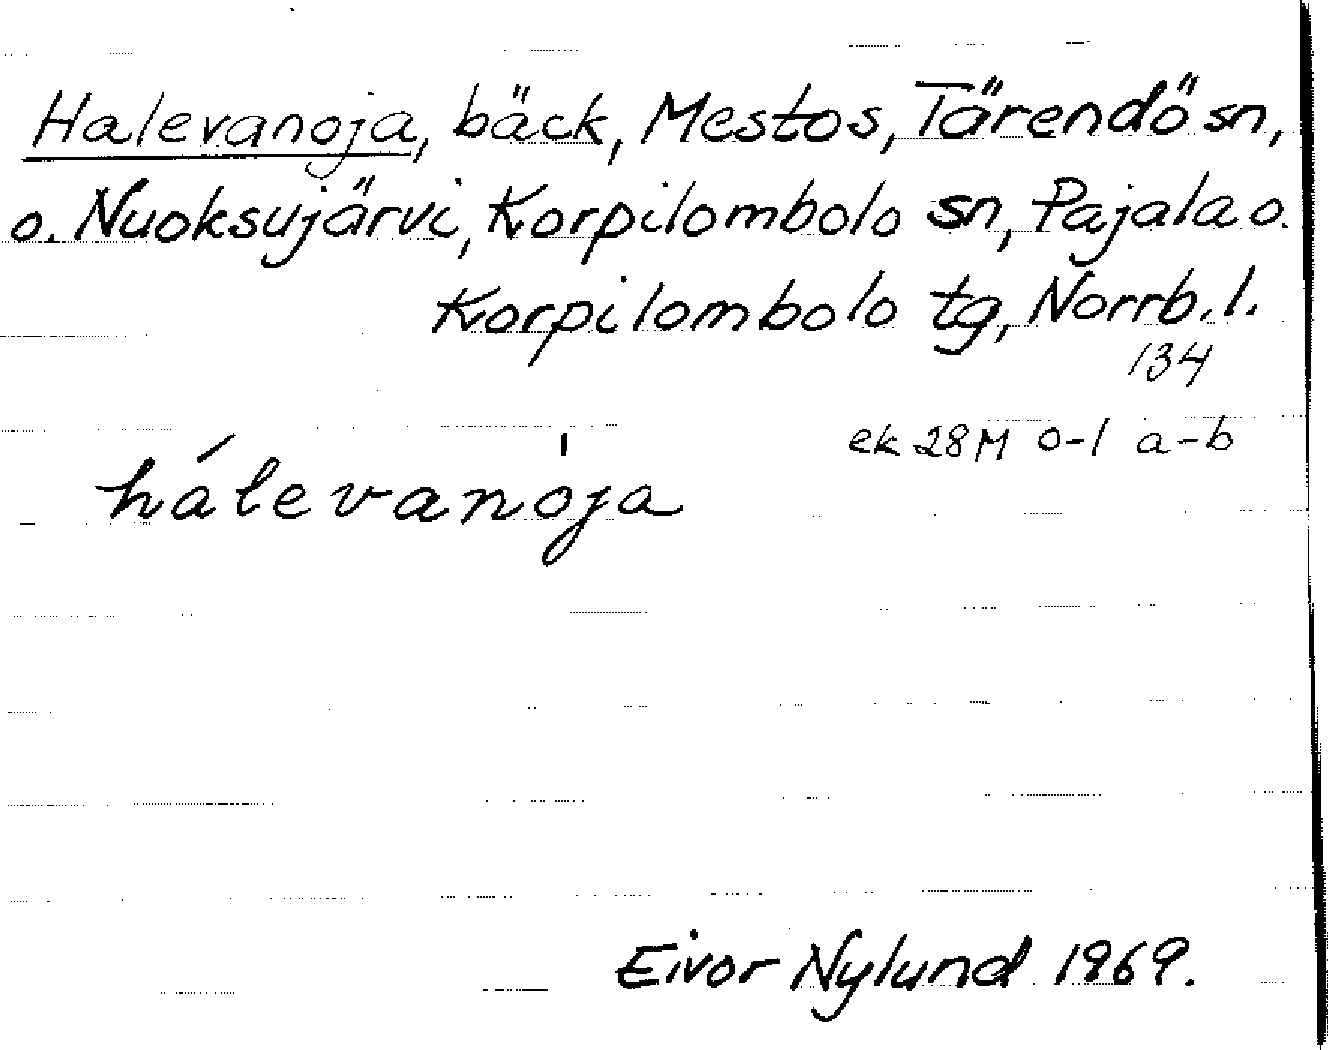 Halevanoja, bäck, Mestos, Tärendö sn,
o. Nuoksujärvi, Korpilombolo sn, Pajala o.
Korpilombolo tg, Norrb. l.
134
ek 28M 0-1 a-b
hálevanˈoja
Eivor Nylund 1969.